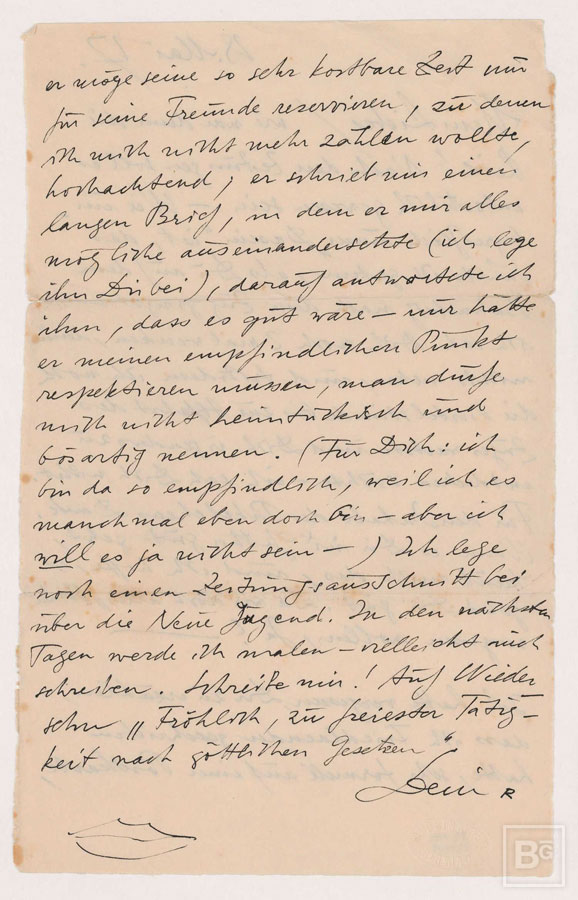 er möge seine so sehr kostbare Zeit nur
für seine Freunde reservieren, zu denen
ich mich nicht mehr zählen wollte,
hochachtend; er schrieb mir einen
langen Brief, in dem er mir alles
mögliche auseinandersetzte (ich lege
ihn Dir bei), darauf antwortete ich
ihm, dass es gut wäre – nur hätte
er meinen empfindlichen Punkt
respektieren müssen, man dürfe
mich nicht heimtückisch und
bösartig nennen. (Für Dich: ich
bin da so empfindlich, weil ich es
manchmal eben doch bin – aber ich
will es ja nicht sein –) Ich lege
noch einen Zeitungsausschnitt bei
über die Neue Jugend. In den nächsten
Tagen werde ich malen – vielleicht auch
schreiben. Schreibe mir! Auf Wieder
sehn „Fröhlich, zu freiester Tätig-
keit nach göttlichen Gesetzen"
Dein R
BG